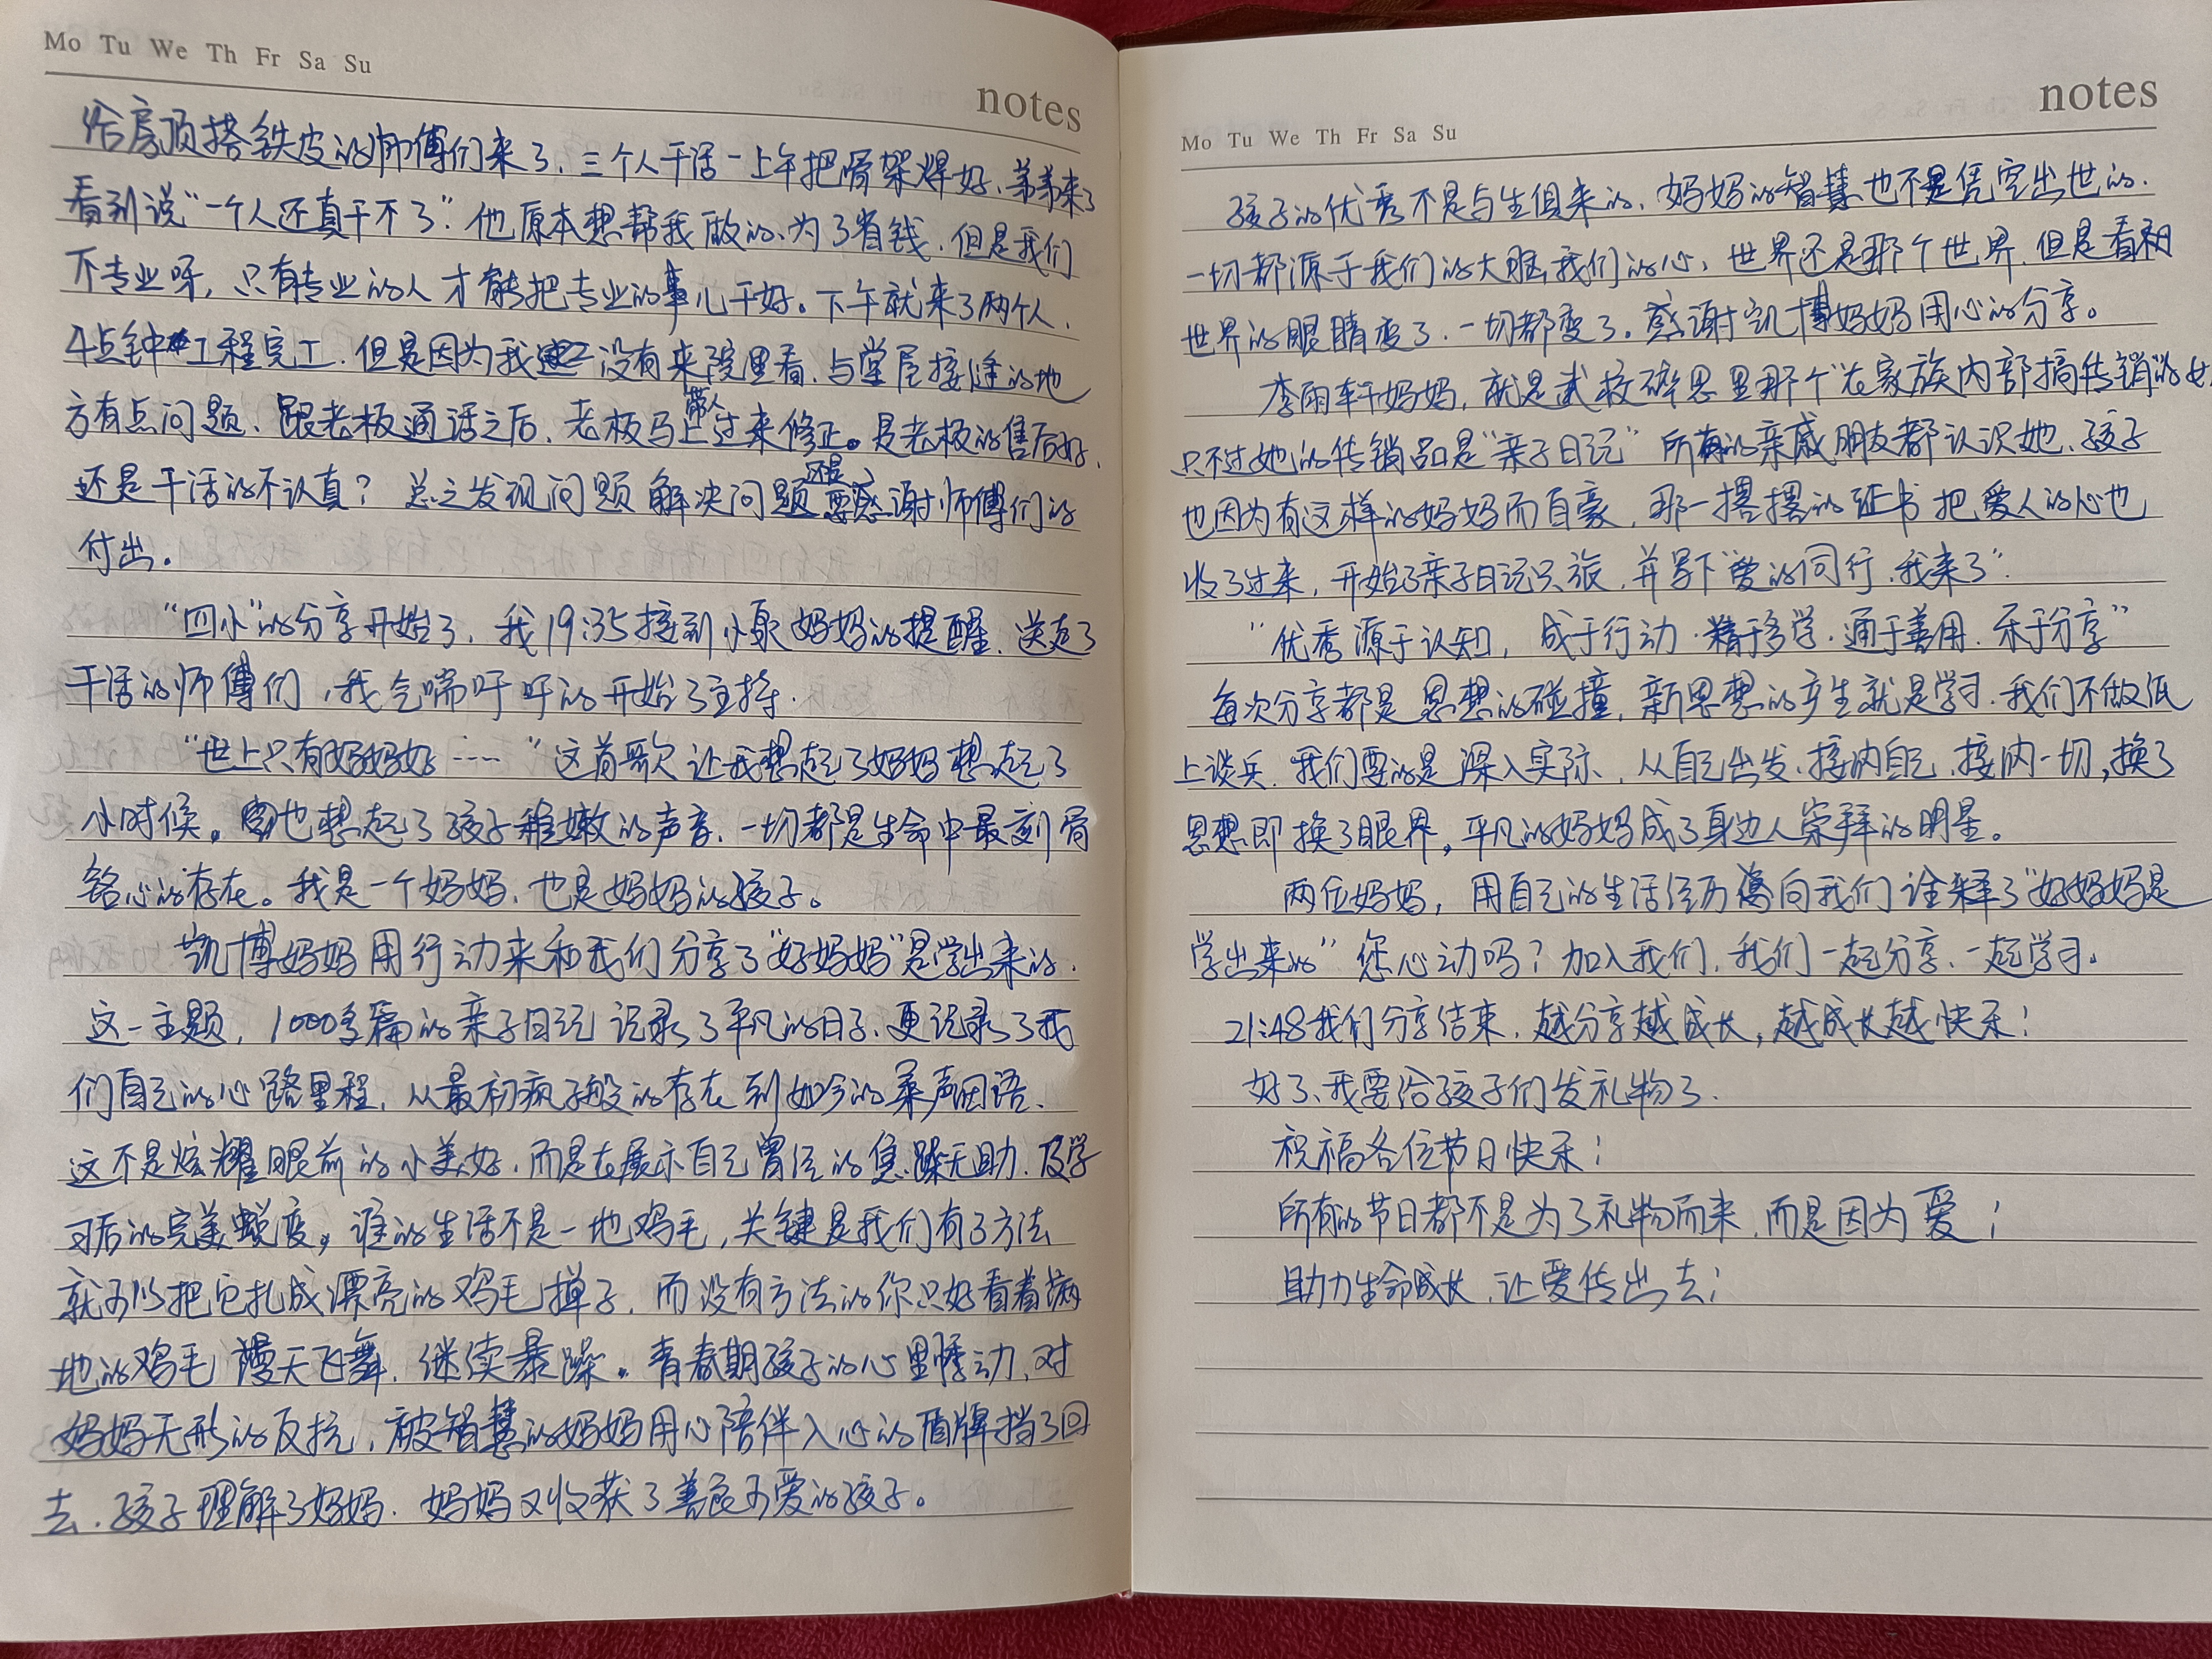 Mo Tu We Th Fr Sa Su
notes
给房顶搭铁皮的师傅们来了、三个人干活一上午把骨架焊好、弟弟来了
看到说“一个人还真干不了”。他原本想帮我做的、为了省钱、但是我们
不专业呀,只有专业的人才能把专业的事儿干好。下午就来了两个人、
4点钟工程完工、但是因为我没有来院里看、与堂屋接缝的地
方有点问题、跟老板通话之后、老板马上带人过来修正。是老板的售后好、
还是干活的不认真?总之发现问题解决问题还是要感谢师傅们的
付出。
“四小”的分享开始了,我19:35接到小歌妈妈的提醒、送走了
干活的师傅们,我气喘吁吁的开始了主持.
“世上只有妈妈好……”这首歌让我想起了妈妈想起了
小时候。也想起了孩子稚嫩的声音、一切都是生命中最刻骨
铭心的存在。我是一个妈妈、也是妈妈的孩子。
凯博妈妈用行动来和我们分享了“好妈妈”是学出来的、
这一主题,1000多篇的亲子日记记录了平凡的日子、更记录了我
们自己的心路里程,从最初疯子般的存在到如今的柔声细语、
这不是炫耀眼前的小美好、而是在展示自己曾经的焦躁无助、及学
习后的完美蜕变。谁的生活不是一地鸡毛,关键是我们有了方法
就可以把它扎成漂亮的鸡毛掸子、而没有方法的你只好看着满
地的鸡毛漫天飞舞、继续暴躁。青春期孩子的心里悸动、对
妈妈无形的反抗,被智慧的妈妈用心陪伴入心的盾牌挡了回
去、孩子理解了妈妈、妈妈又收获了善良可爱的孩子。
notes
Mo Tu We Th Fr Sa Su
孩子的优秀不是与生俱来的、妈妈的智慧也不是凭空出世的、
一切都源于我们的大脑我们的心,世界还是那个世界、但是看和
世界的眼睛变了、一切都变了。感谢凯博妈妈用心的分享。
李雨轩妈妈,就是武校碎思里那个“在家族内部搞传销”的女
只不过她的传销品是“亲子日记”所有的亲戚朋友都认识她、孩子
也因为有这样的妈妈而自豪,那一摞摞的证书把爱人的心也
收了过来,开始了亲子日记只旅,并写下“爱的同行、我来了”.
“优秀源于认知,成于行动、精于多学、通于善用、乐于分享”
每次分享都是思想的碰撞,新思想的产生就是学习、我们不做纸
上谈兵、我们要的是深入实际,从自己出发、接纳自己、接纳一切,换了
思想即换了眼界,平凡的妈妈成了身边人崇拜的明星。
两位妈妈,用自己的生活经历向我们诠释了“好妈妈是
学出来的”您心动吗?加入我们、我们一起分享、一起学习。
21:48我们分享结束、越分享越成长,越成长越快乐!
好了、我要给孩子们发礼物了.
祝福各位节日快乐!
所有的节日都不是为了礼物而来、而是因为爱!
助力生命成长、让爱传出去!